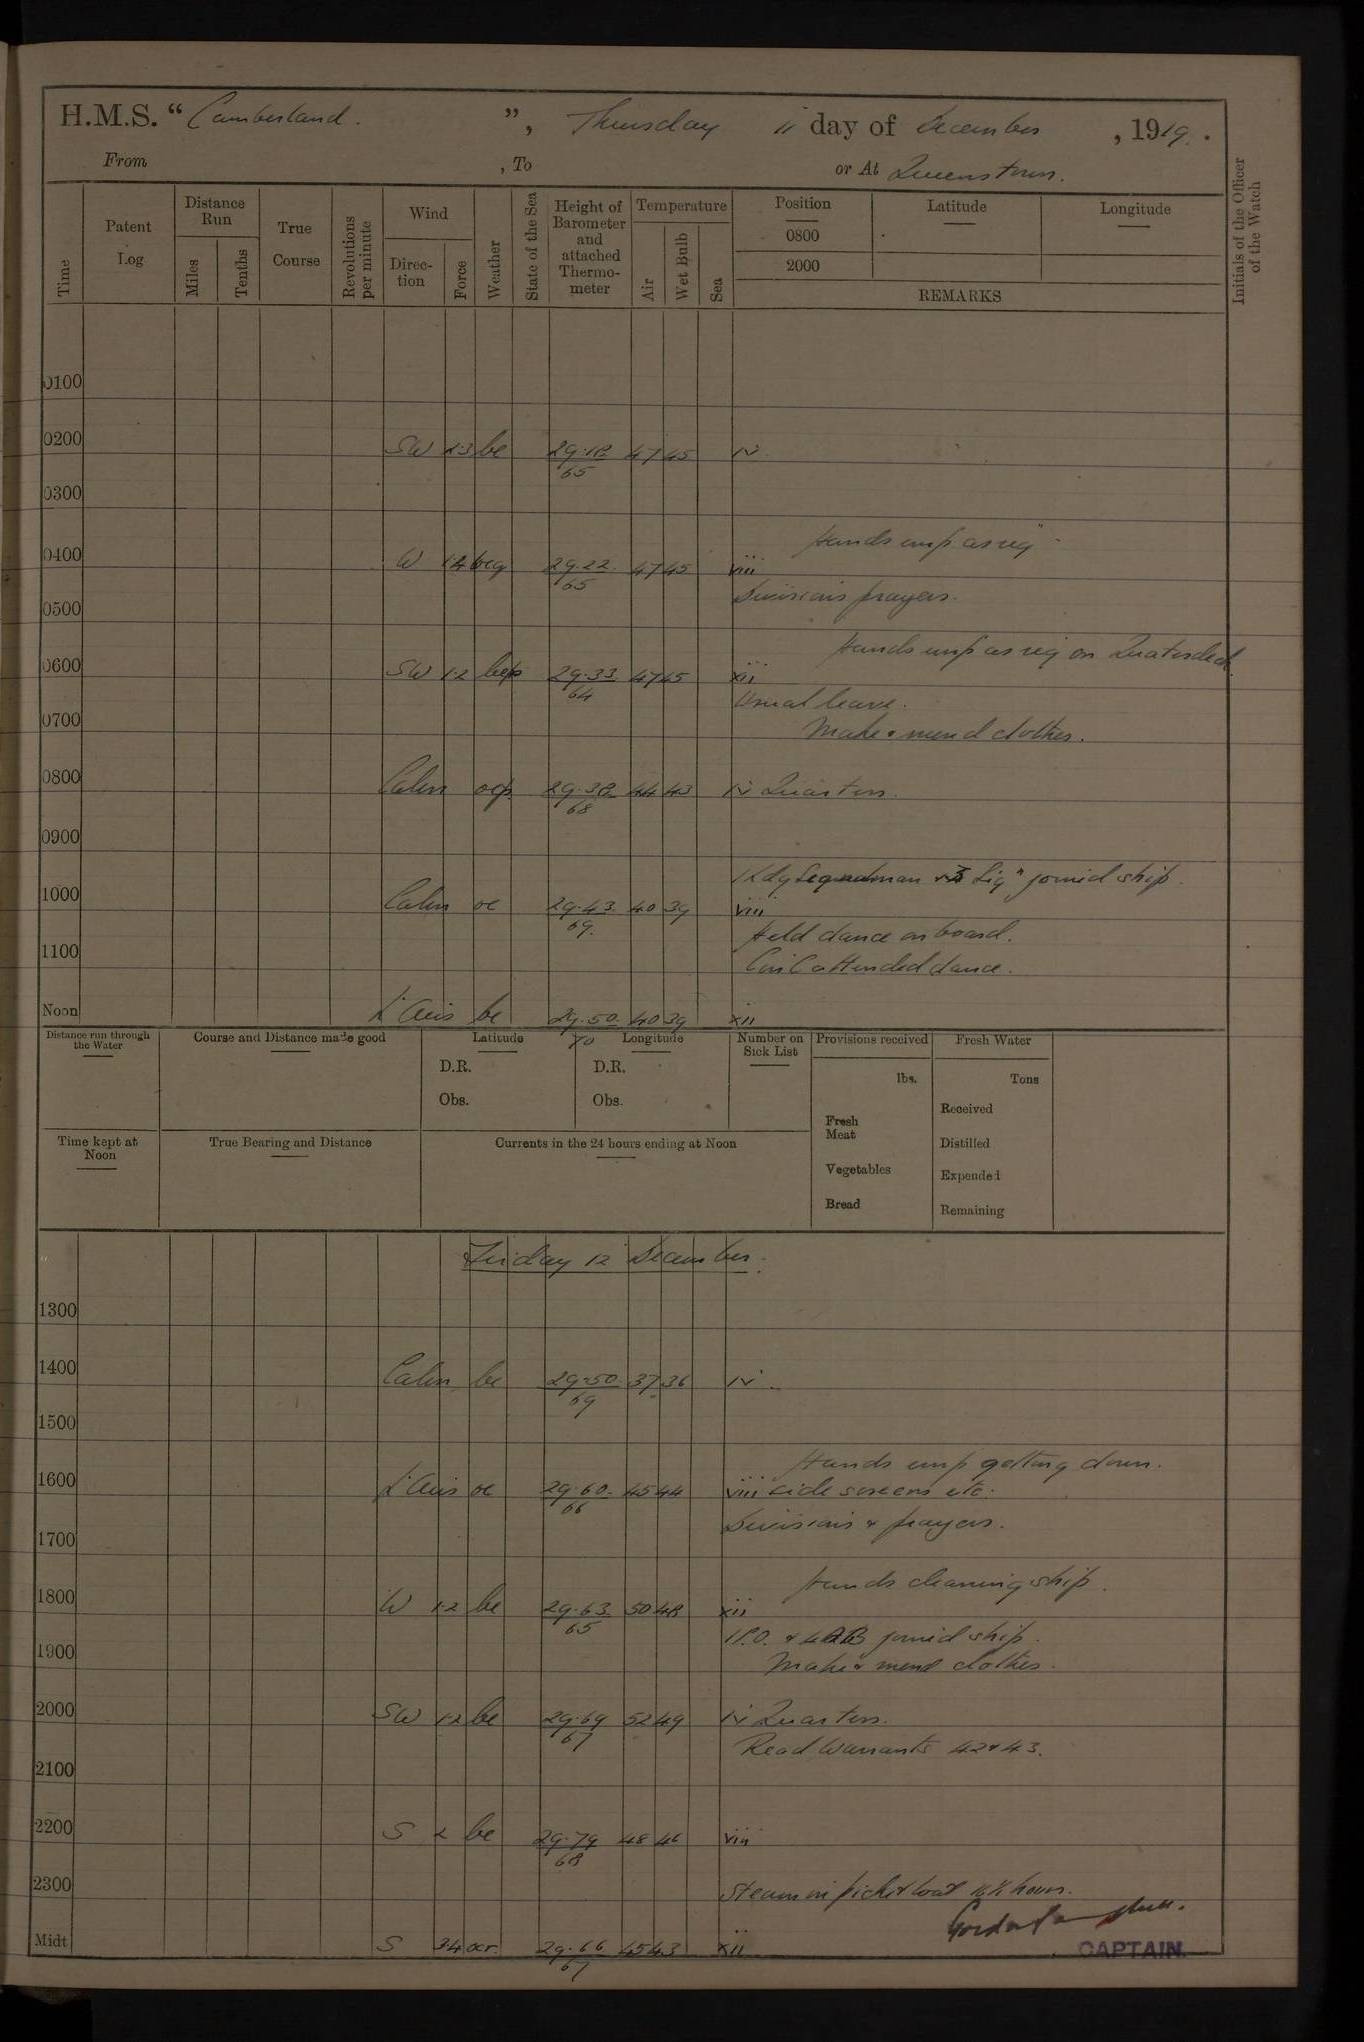 H.M.S. “ Cumberland. ”, Thursday 11 day of December, 1919.
From , To or At Queenstown.
Time
Patent Log
Distance Run
Miles
Tenths
True Course
Revolutions per minute
Wind
Direction
Force
Weather
State of the Sea
Height of Barometer and attached Thermometer
Temperature
Air
Wet Bulb
Sea
Position
0800
2000
Latitude
Longitude
REMARKS
Initials of the Officer of the Watch
0100
0200 SW 2.3 bc 29.18 47 45 iv
65
0300
Hands emp as req
0400 W bcq 29.22 47 45 viii
65
0500 Divisions prayers.
Hands emp as req on Quaterdeck
0600 SW 1.2 bcp 29.33 47 45 xii
64
Usual leave.
0700 Make & mend clothes.
0800 Calm ocp 29.38 44 43 iv Quarters.
68
0900
joined ship.
1000 Calm oc 29.43 40 39 viii
69.
Held dance on board.
1100 C in C attended dance.
Noon L'Airs bc 29.50 40 39 xii
70
Distance run through the Water
Course and Distance made good
Latitude
D.R.
Obs.
Longitude
D.R.
Obs.
Number on Sick List
Provisions received
lbs.
Fresh Meat
Vegetables
Bread
Fresh Water
Tons
Received
Distilled
Expended
Remaining
Time kept at Noon
True Bearing and Distance
Currents in the 24 hours ending at Noon
Friday 12 December.
1300
1400 Calm bc 29.50 37 36 iv
69
1500
Hands emp getting down
1600 L'Airs oc 29.60 45 44 viii side screens etc.
66
1700 Divisions & prayers.
Hands cleaning ship.
1800 W 1.2 bc 29.63 50 48 xii
65
1 P.O. & 4 AB joined ship.
1900 Make & mend clothes.
2000 SW 1.2 bc 29.69 52 49 iv Quarters.
67
Read Warrants 42 & 43.
2100
2200 S 2 bc 29.79 48 46 viii
68
2300 Steam in picket boat hours.
Midt S 3.4 ocr. 29.66 45 43 xii
67
CAPTAIN.